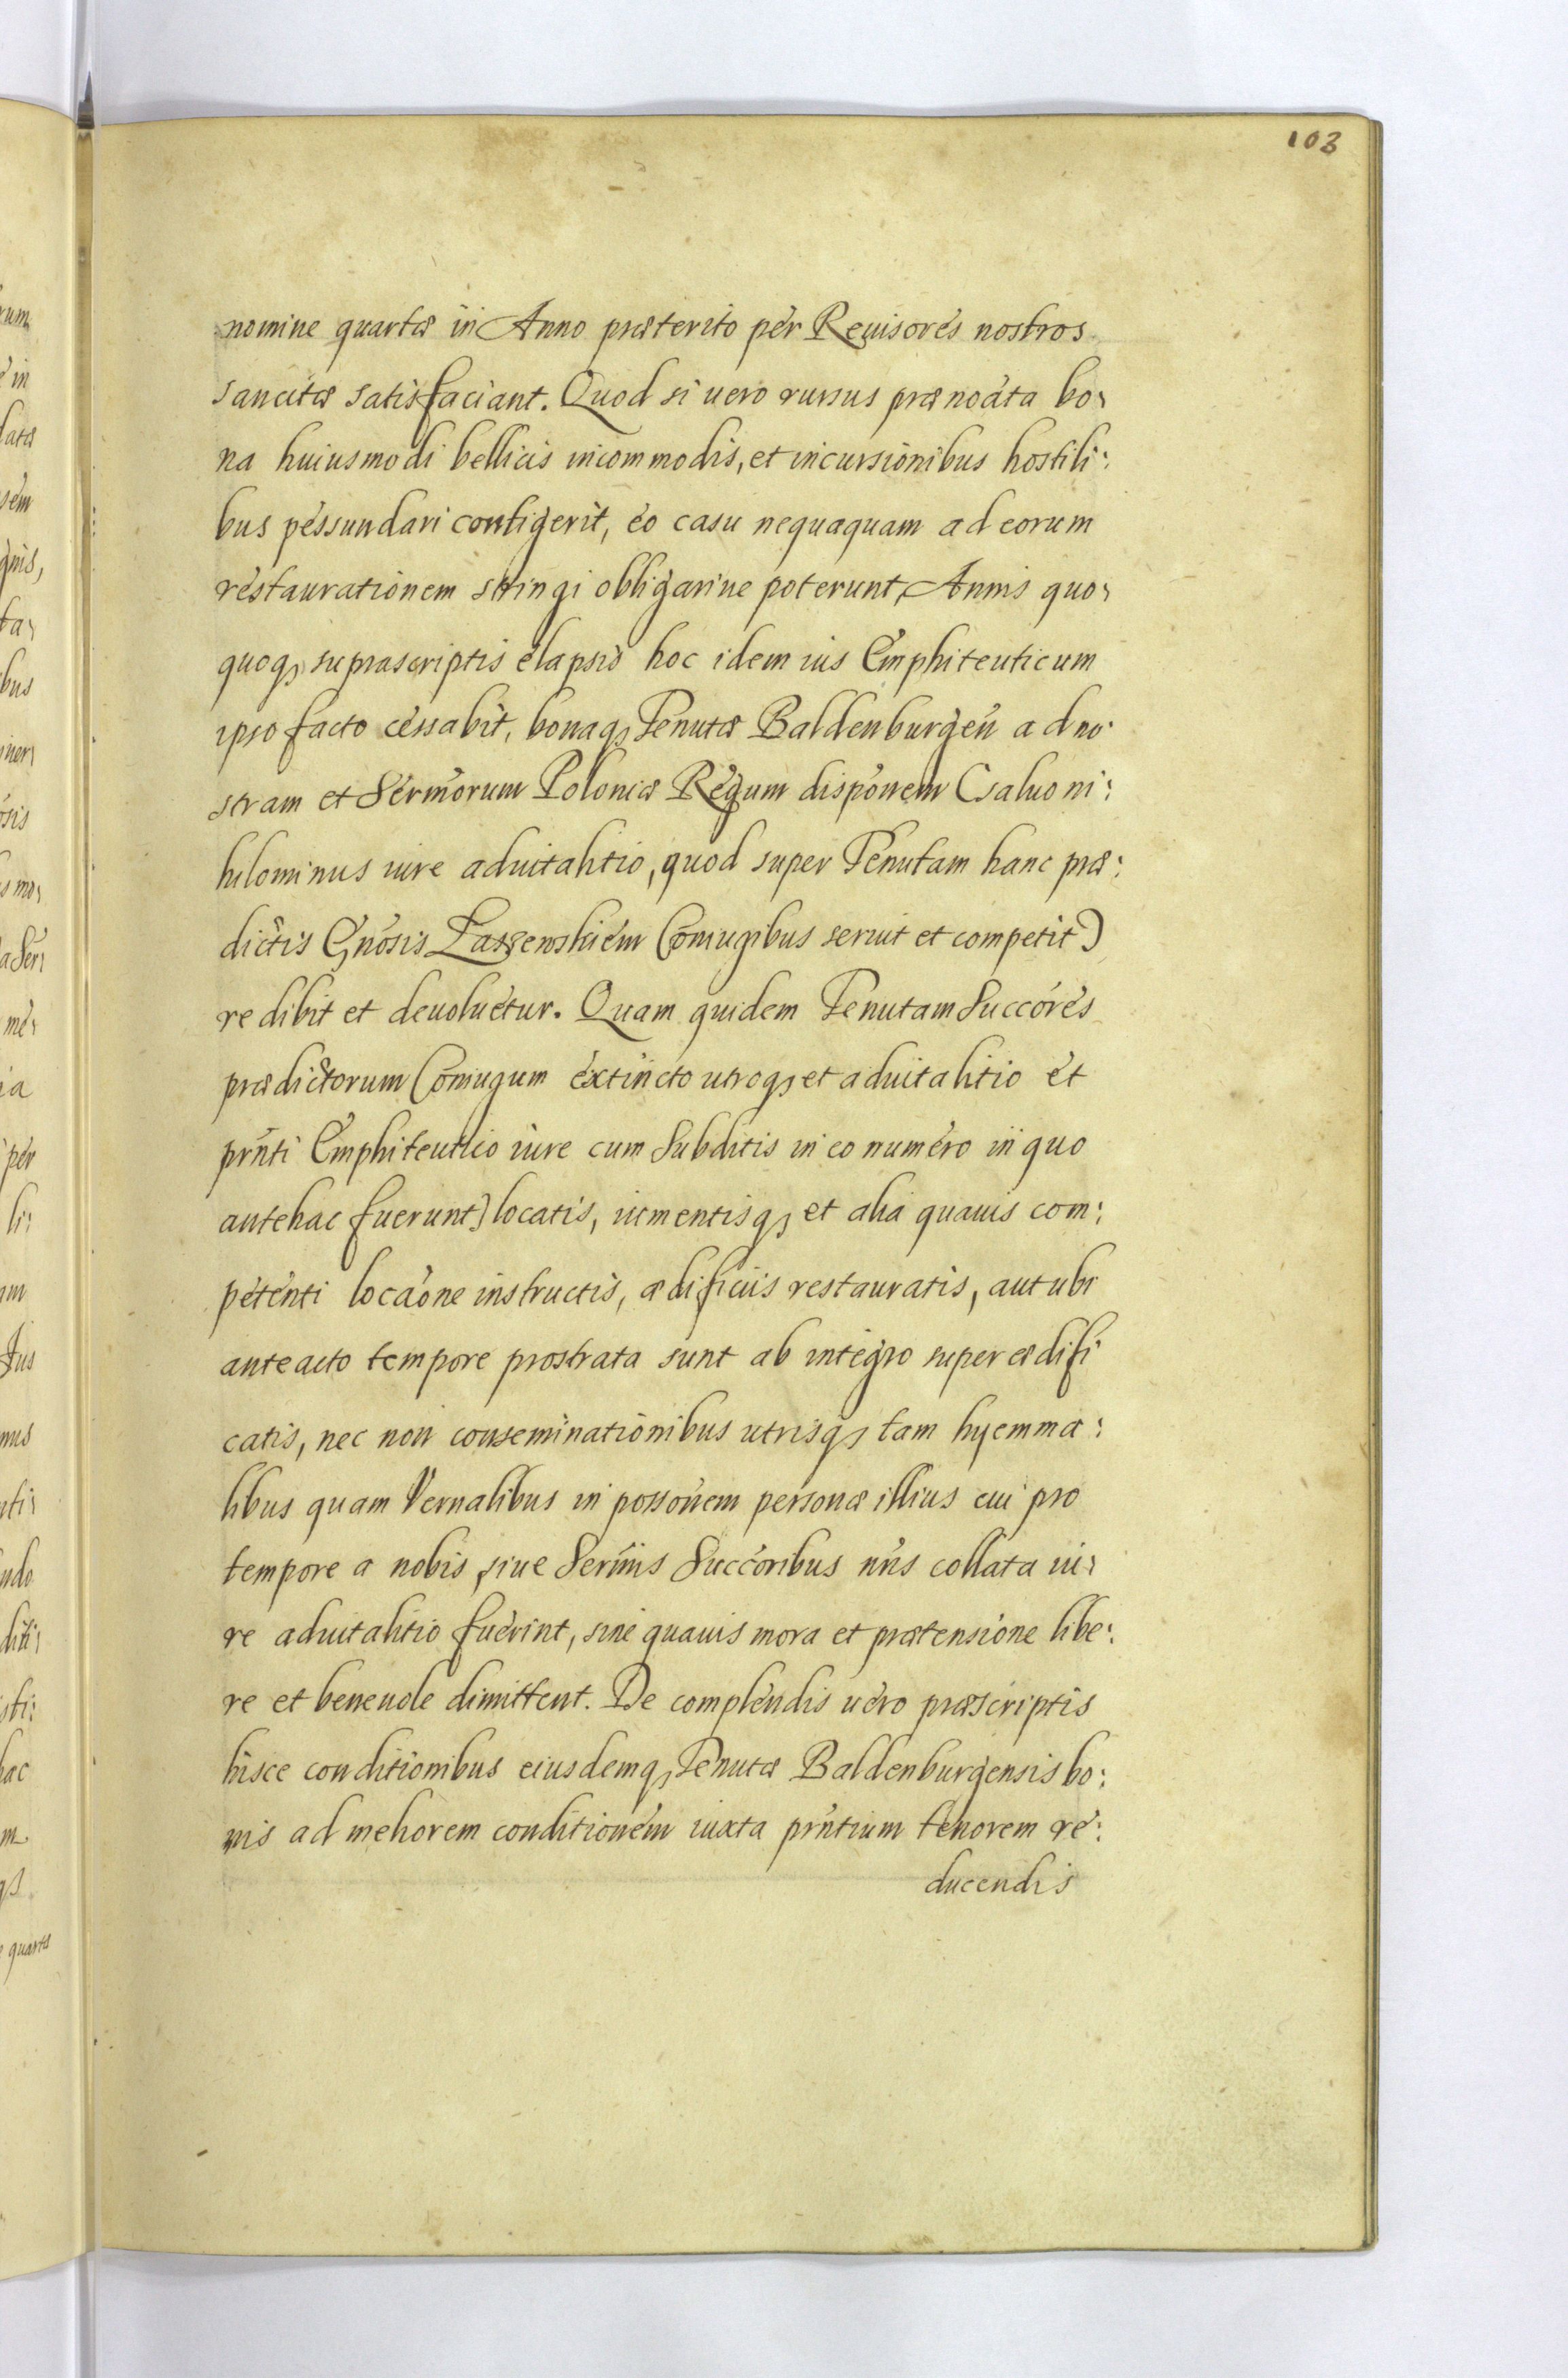 103
nomine quartæ in Anno præterito per Reuisores nostros
sancitæ satisfaciant. Quod si uero rursus prænoāta bo,
na huiusmodi bellicis incommodis, et incursionibus hostili:
bus pessundari contigerit, eo casu nequaquam ad eorum
restaurationem stringi obligariue poterunt, Annis quo,
quoq, suprascriptis elapsis hoc idem ius Emphiteuticum
ipso facto cessabit, bonaq, Tenutæ Baldenburgeñ ad no:
stram et Sermōrum Poloniæ Regum dispōnem (saluo ni:
hilominus iure aduitalitio, quod super Tenutam hanc præ:
dictis Gnōsis Coniugibus seruit et competit)
redibit et deuoluetur. Quam quidem Tenutam Succōres
prædictorum Coniugum extincto utroq, et aduitalitio et
prn̄ti Emphiteutico iure cum Subditis in eo numero in quo
antehac fuerunt) locatis, iumentisq, et alia quauis com:
petenti locaōne instructis, ædificiis restauratis, aut ubi
anteacto tempore prostrata sunt ab integro superædifi
catis, nec non conseminationibus utrisq, tam hyemma:
libus quam Vernalibus in possōnem personæ illius cui pro
tempore a nobis, siue Serm̄is Succōribus nr̄is collata iu,
re aduitalitio fuerint, sine quauis mora et prætensione libe:
re et beneuole dimittent. De complendis uero præscriptis
hisce conditionibus eiusdemq, Tenutæ Baldenburgensis bo:
nis ad meliorem conditionem iuxta prn̄tium tenorem re:
ducendis